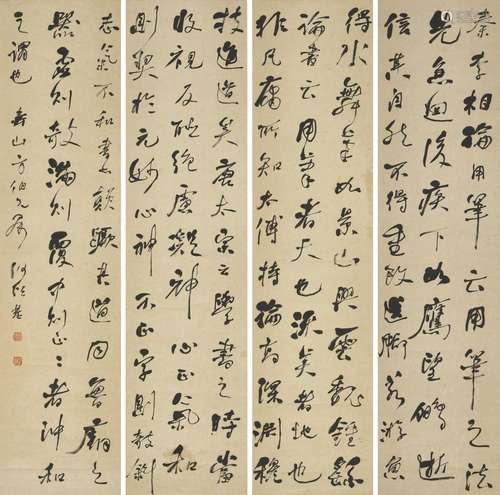 秦李相論用筆云用筆之法
先急迴後疾下如鷹望鵬逝
信其自然不得重改送脚若游魚
得水舞筆如景山興雲魏鍾繇
論書云用筆者天也流美者地也
非凡庸所知太傅特論高深淵穆
技進道矣唐太宗云學書之時當
收視反聽絕慮凝神心正氣和
則契於元妙心神不正字則欹斜
志氣不和書必顛躓其道同魯廟之
器虛則欹滿則覆中則正々者沖和
之謂也 壽山方伯 屬 何紹基